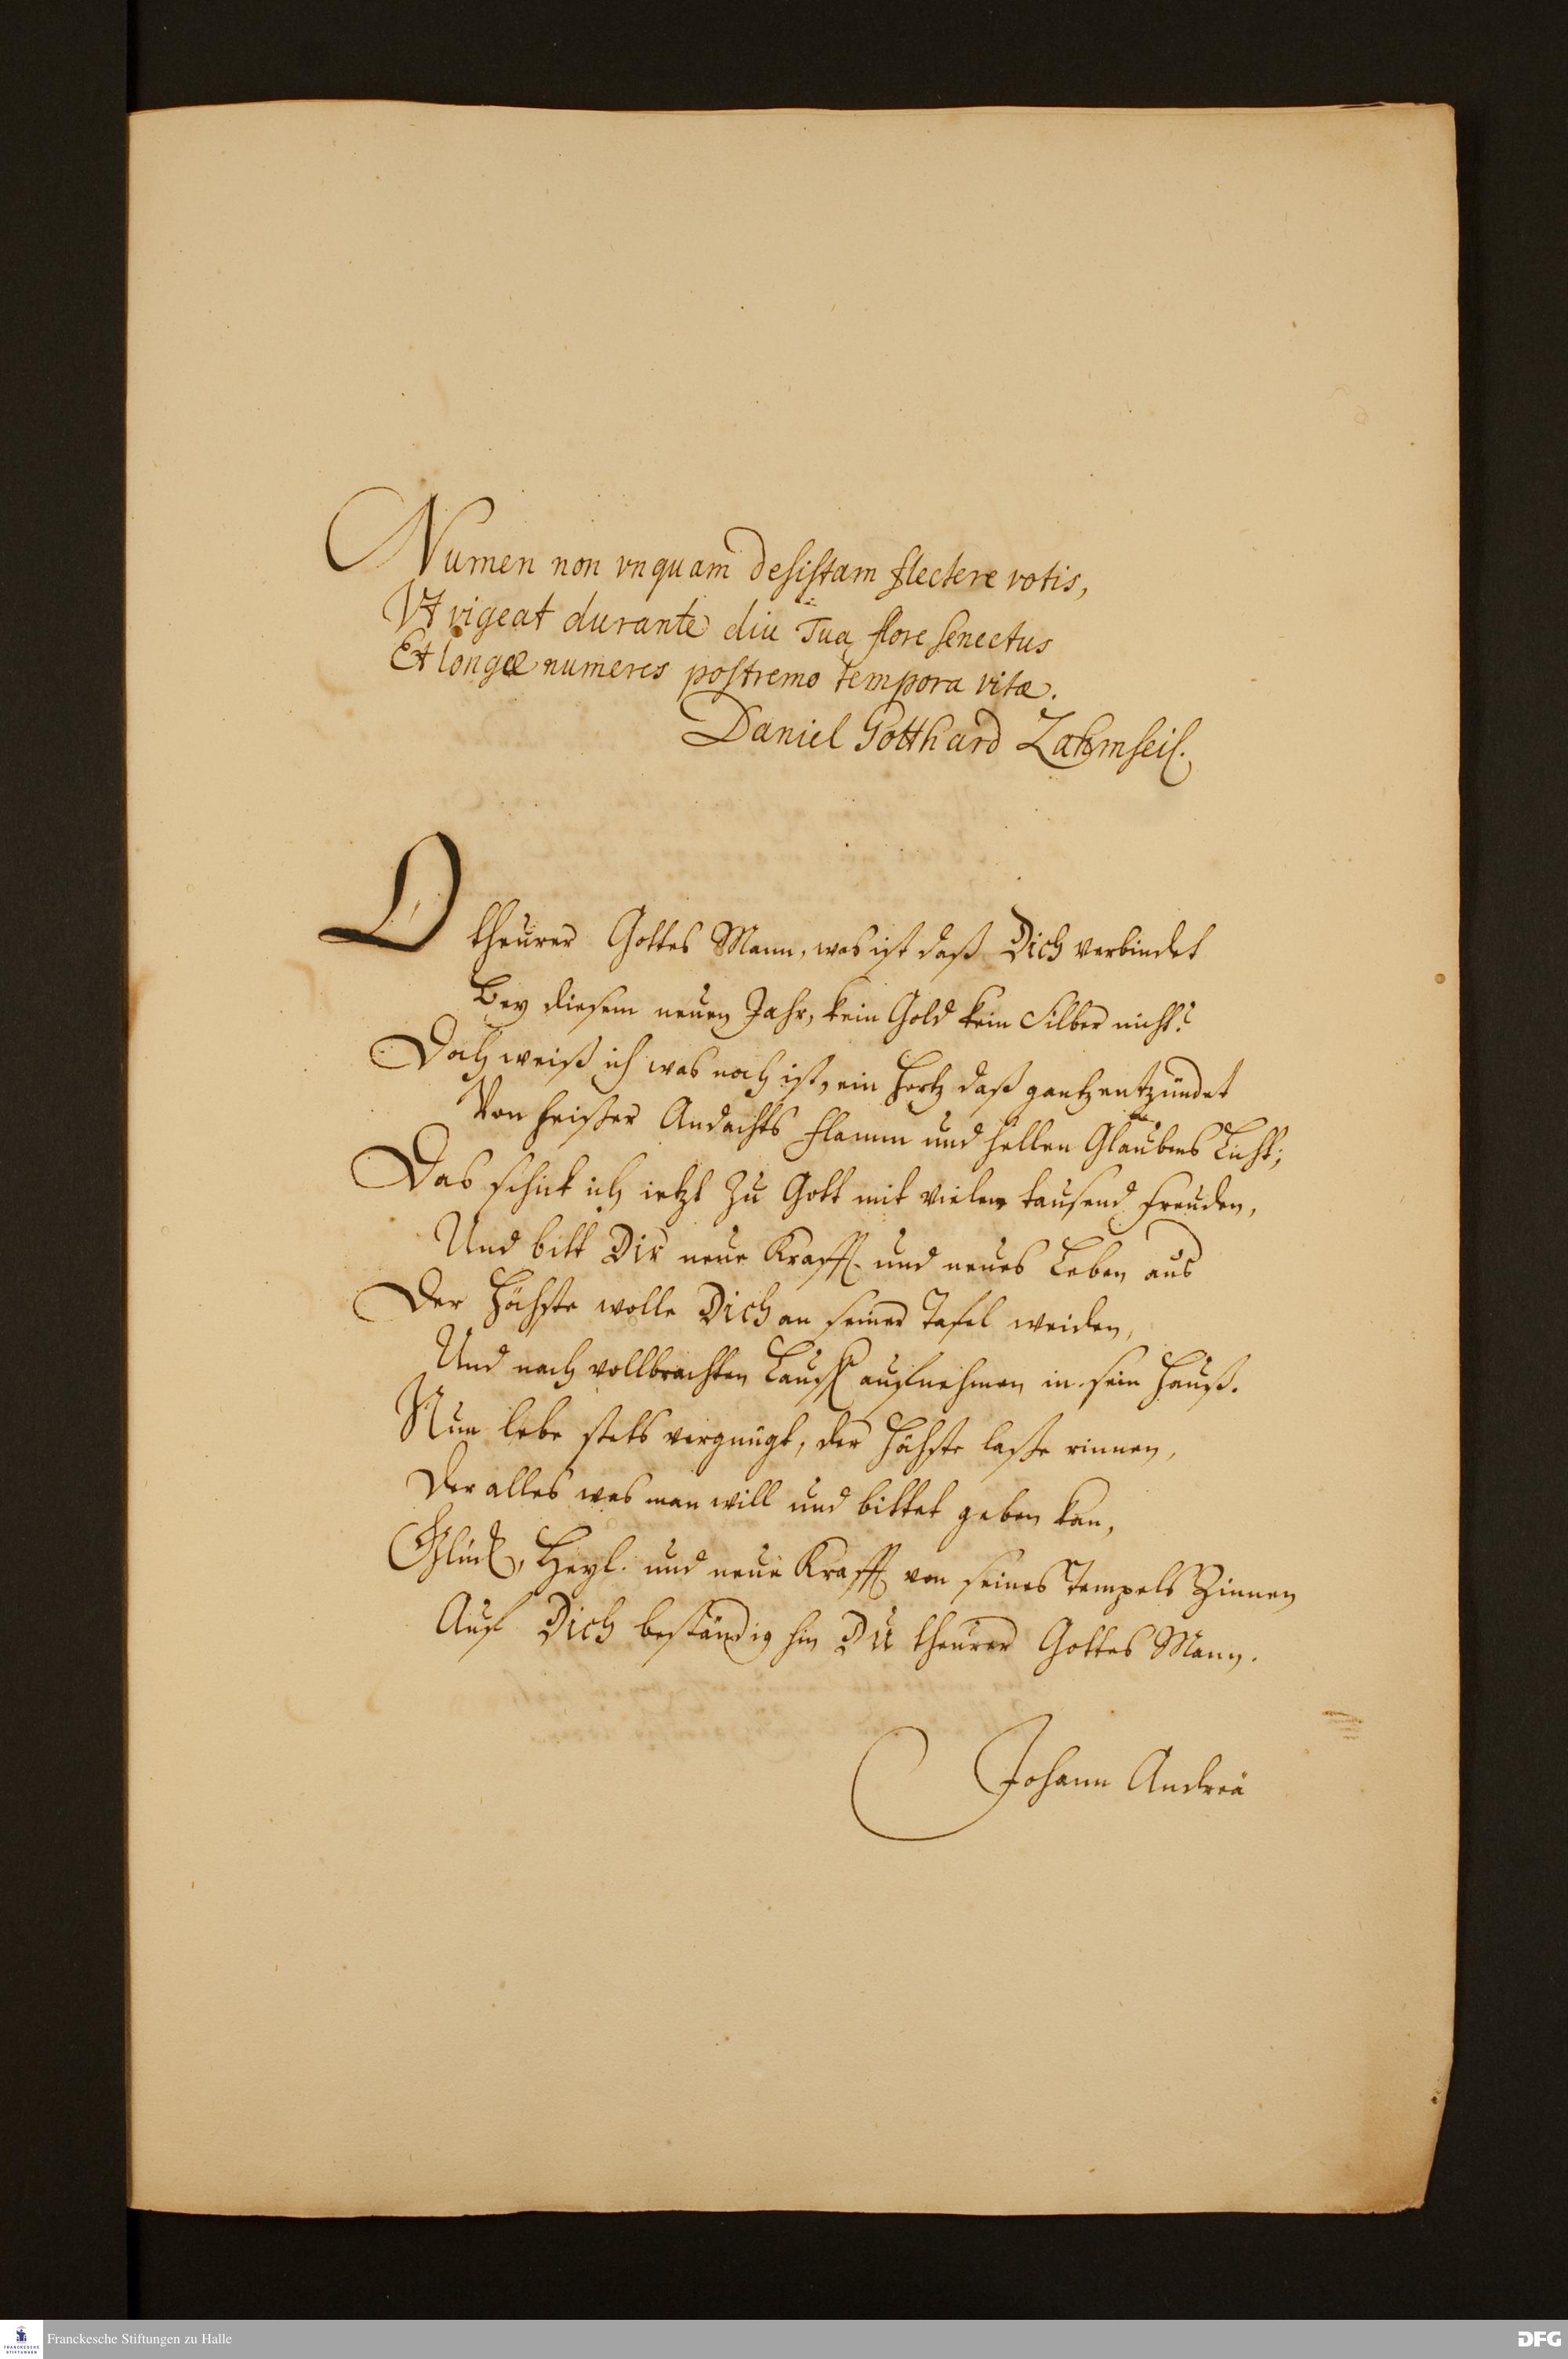 Numen non vnquam desistam flectere votis,
Vt vigeat durante diu Tua flore senectus
Et longæ numeres postremo tempora vitæ.
Daniel Gotthard Zahmseil.
O theurer Gottes Mann, was ist daß Dich verbindet
Bey diesem neuen Jahr, kein Gold kein Silber nicht?
Doch weiß ich was noch ist, ein Hertz daß gantz entzündet
Von heißer Andachts Flamm und hellen Glaubens Licht;
Das schick ich ietzt zu Gott mit vielen tausend Freuden,
Und bitt Dir neue Krafft und neues Leben aus
Der Höchste wolle Dich an seiner Tafel weiden,
Und nach vollbrachten Lauff aufnehmen in sein Hauß.
Nun lebe stets vergnügt, der Höchste laße rinnen,
Der alles was man will und bittet geben kan,
Glück, Heyl und neue Krafft von seines Tempels Zinnen
Auf Dich beständig hin Du theurer Gottes Mann.
Johann Andreä
FRANCKESCHE
STIFTUNGEN
Franckesche Stiftungen zu Halle
DFG